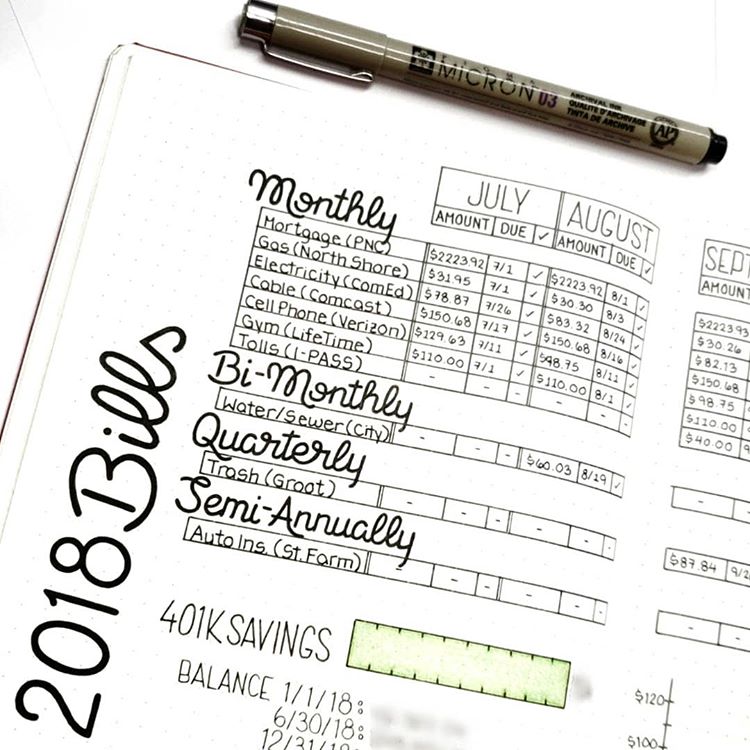 SAKURA PIGMA
MICRON 03
ARCHIVAL INK
QUALITÉ D'ARCHIVAGE
TINTA DE ARCHIVE
AP
2018 Bills
Monthly
JULY AUGUST SEPT
AMOUNT DUE ✓ AMOUNT DUE ✓ AMOUNT
Mortgage (PNC) $2223.92 7/1 ✓ $2223.92 8/1 ✓ $2223.9
Gas (North Shore) $31.95 ✓ $30.30 8/3 ✓ $30.26
Electricity (ComEd) $78.87 7/26 ✓ $83.32 8/24 ✓ $82.13
Cable (Comcast) $150.68 7/17 ✓ $150.68 8/16 ✓ $150.68
Cell Phone (Verizon) $129.63 7/11 ✓ $98.75 8/11 ✓ $98.75
Gym (LifeTime) $110.00 7/1 ✓ $110.00 8/1 ✓ $110.00
Tolls (I-PASS) - - - - - - $40.00
Bi-Monthly
Water/Sewer (City) - - - $60.03 8/29 ✓ -
Quarterly
Trash (Groot) - - - - - - $87.84 9/2
Semi-Annually
Auto Ins. (St. Farm) - - - - - - - -
401K SAVINGS
BALANCE 1/1/18:
6/30/18:
12/31/18:
$120
$100